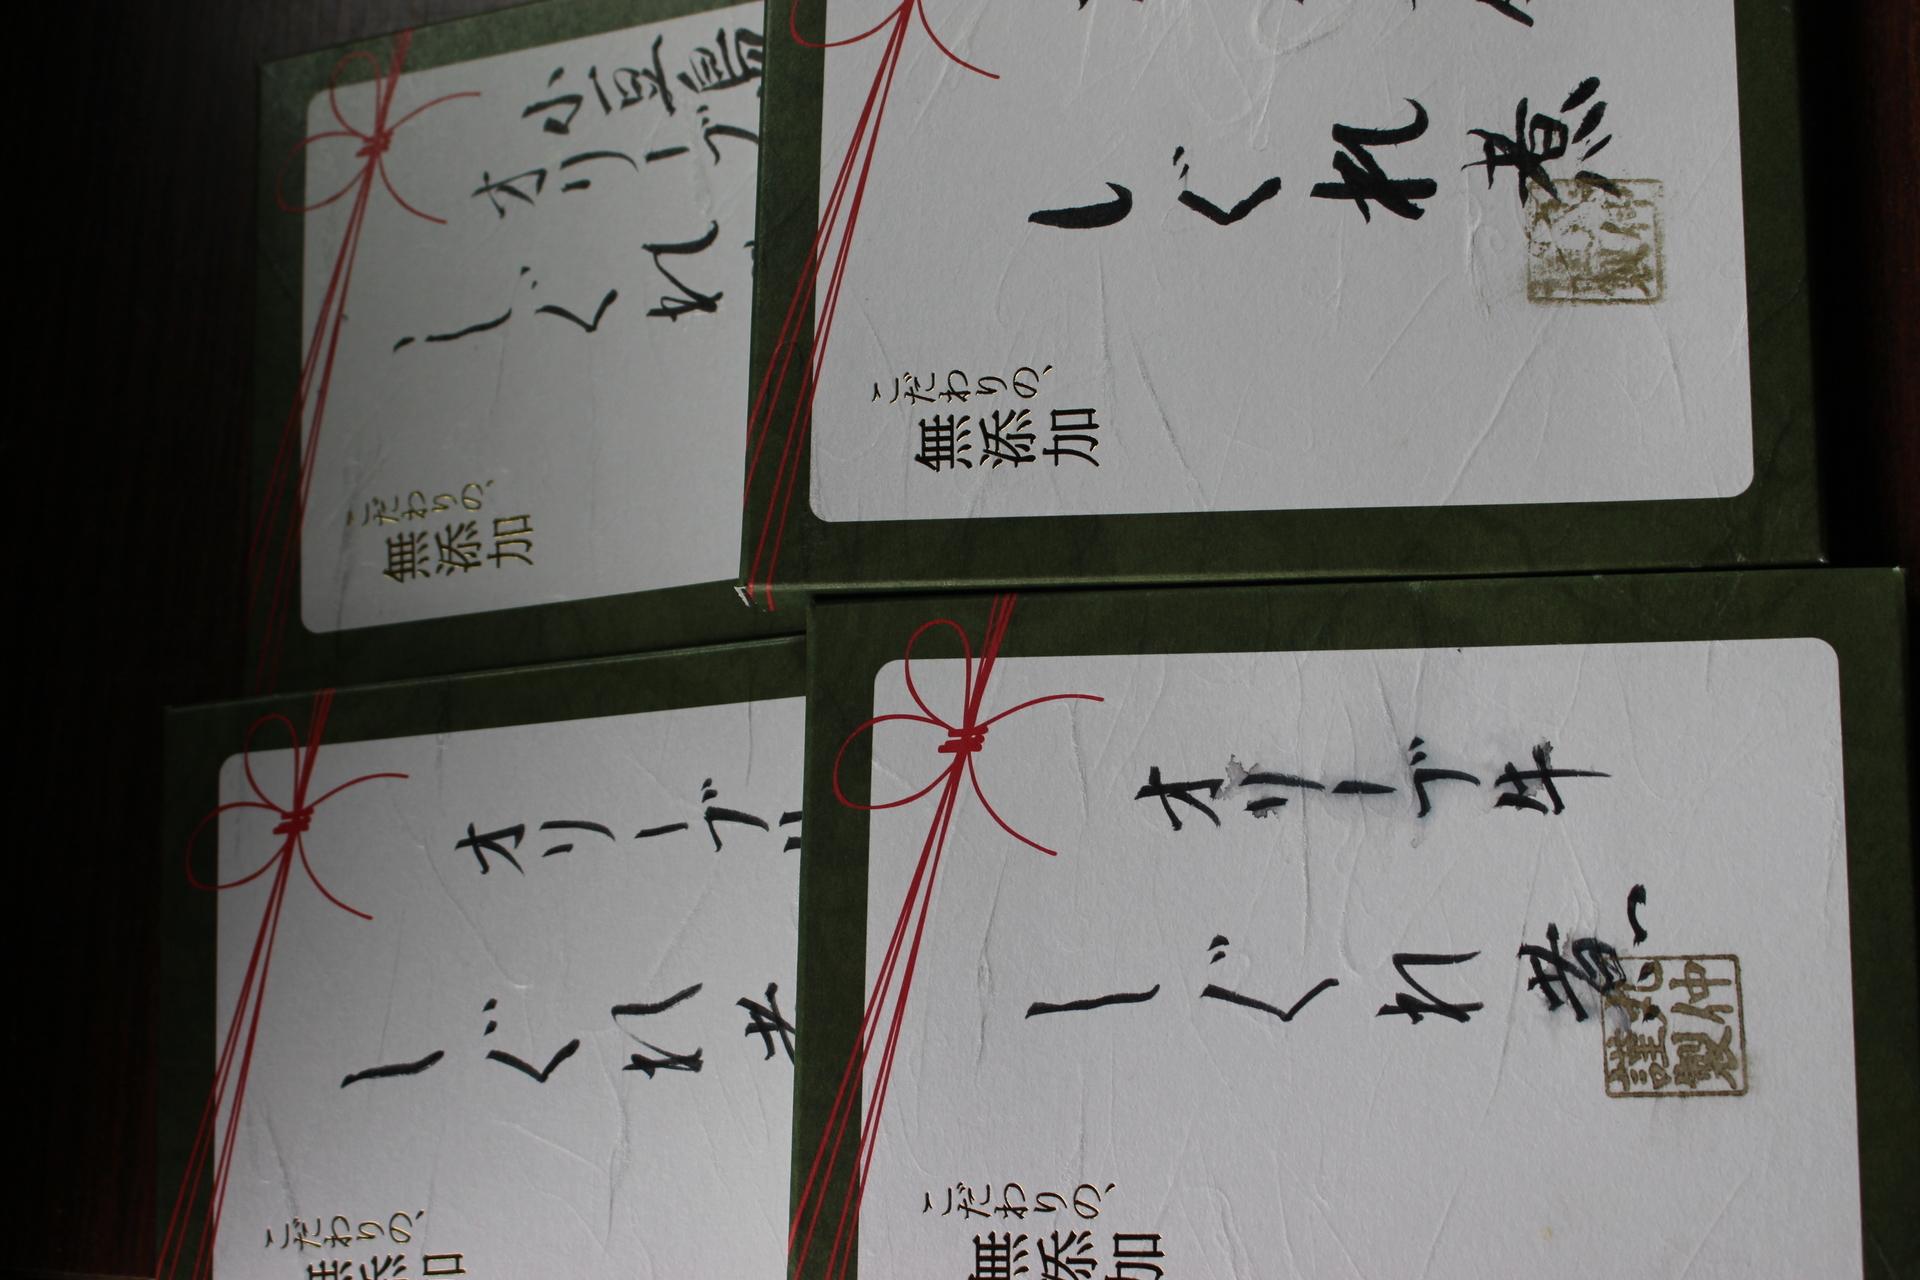 小豆島
オリーブ
しぐれ
こだわりの、
無添加
しぐれ煮
こだわりの、
無添加
オリーブ
しぐれ
こだわりの、
無添加
オリーブ牛
しぐれ煮
仲
謹製
こだわりの、
無添加